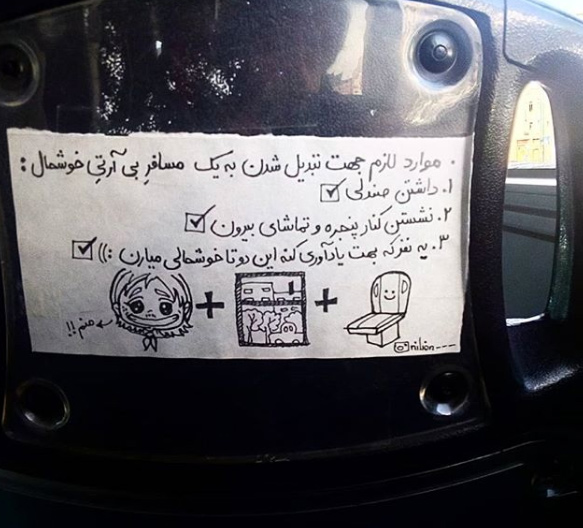 ۰ موارد لازم جهت تبدیل شدن به یک مسافرِ بی آرتیِ خوشمال :
۱. داشتن صندلی ☑
۲. نشستن کنار پنجره و تماشای بیرون ☑
۳. یه نفر که بهت یادآوری کنه این دو تا خوشمالی میارن :)) ☑
منم!! + +
nilión---